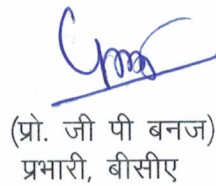 (प्रो. जी पी बनज)
प्रभारी, बीसीए